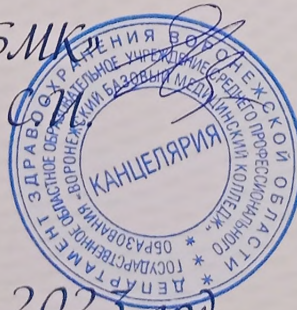 БМК"
С.И.
ДЕПАРТАМЕНТ ЗДРАВООХРАНЕНИЯ ВОРОНЕЖСКОЙ ОБЛАСТИ *
ГОСУДАРСТВЕННОЕ ОБЛАСТНОЕ ОБРАЗОВАТЕЛЬНОЕ УЧРЕЖДЕНИЕ СРЕДНЕГО ПРОФЕССИОНАЛЬНОГО ОБРАЗОВАНИЯ *
"ВОРОНЕЖСКИЙ БАЗОВЫЙ МЕДИЦИНСКИЙ КОЛЛЕДЖ"
КАНЦЕЛЯРИЯ